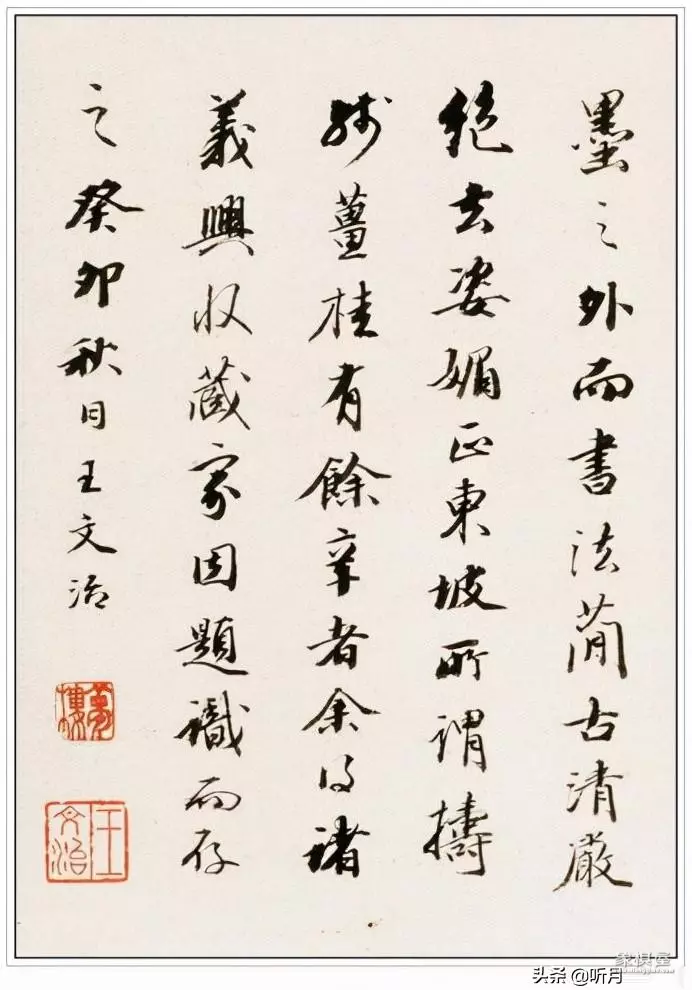 墨之外而書法簡古清嚴
絕去姿媚正東坡所謂擣
殘薑桂有餘辛者余得諸
義興收藏家因題識而存
之癸卯秋日王文治
夢樓
王文治
象棋屋
头条 @听月